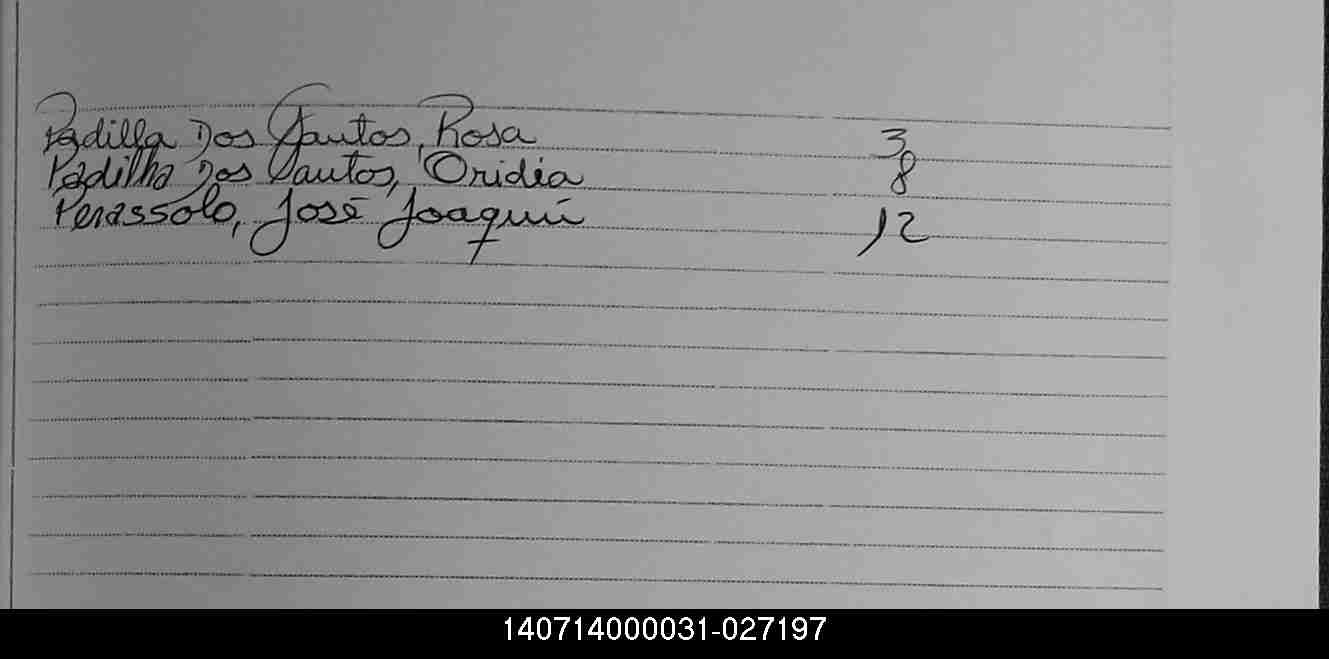 Padilla Dos Santos, Rosa 3
Padilha Dos Santos, Oridia 8
Perassolo, José Joaquín 12
140714000031-027197